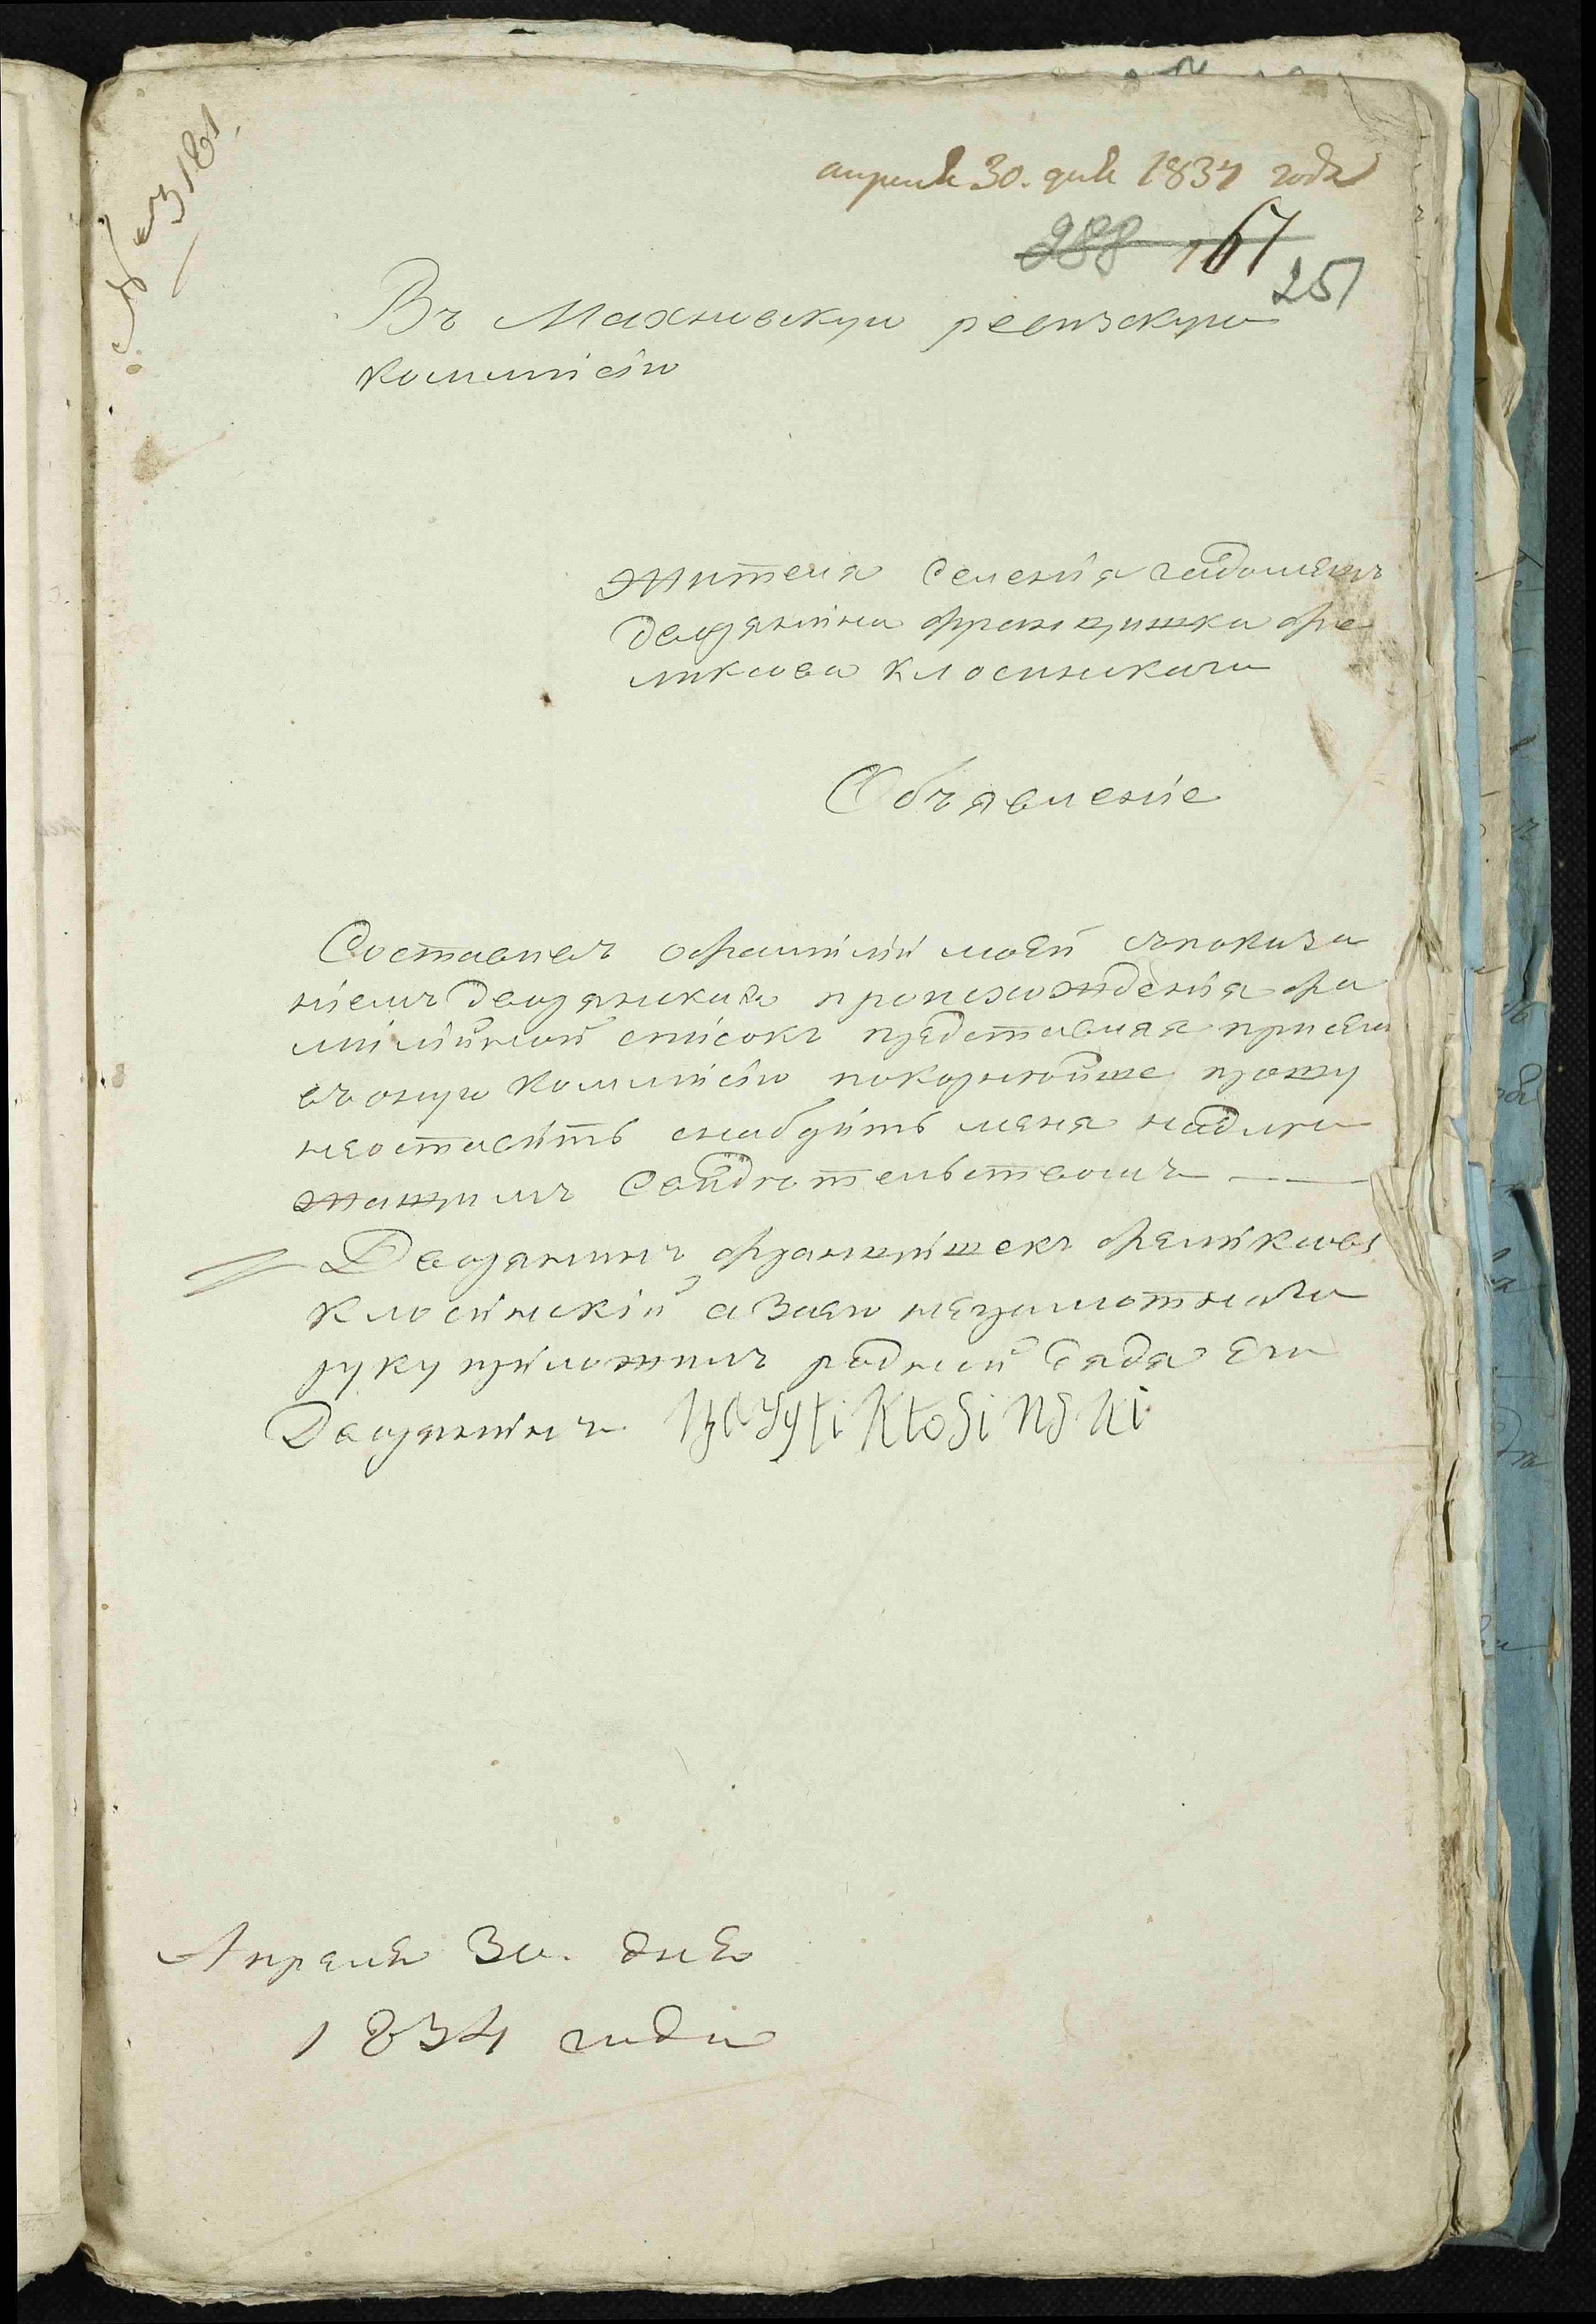 апреля 30. дня 1834 года
288 167
251
Въ Махновскую ревизскую
коммисію
Жителя Селенія
дворянина францишка фе
ликсова Клосинскаго
Объявленіе
Составивъ офамиліи моей споказа
ніемъ дворянскаго происхожденія фа
милійной списокъ представляя присемъ
въ оную Коммисію покорнюйше прошу
неоставить снабдить меня надле
жащимъ Свидютельствомъ
Дворянинъ францишекъ феликсовъ
Клосинскій а вмею неграмотнаго
руку приложилъ родной дядя Его
Дворянинъ Kłosinski
Апреля 30. дня
1834 года